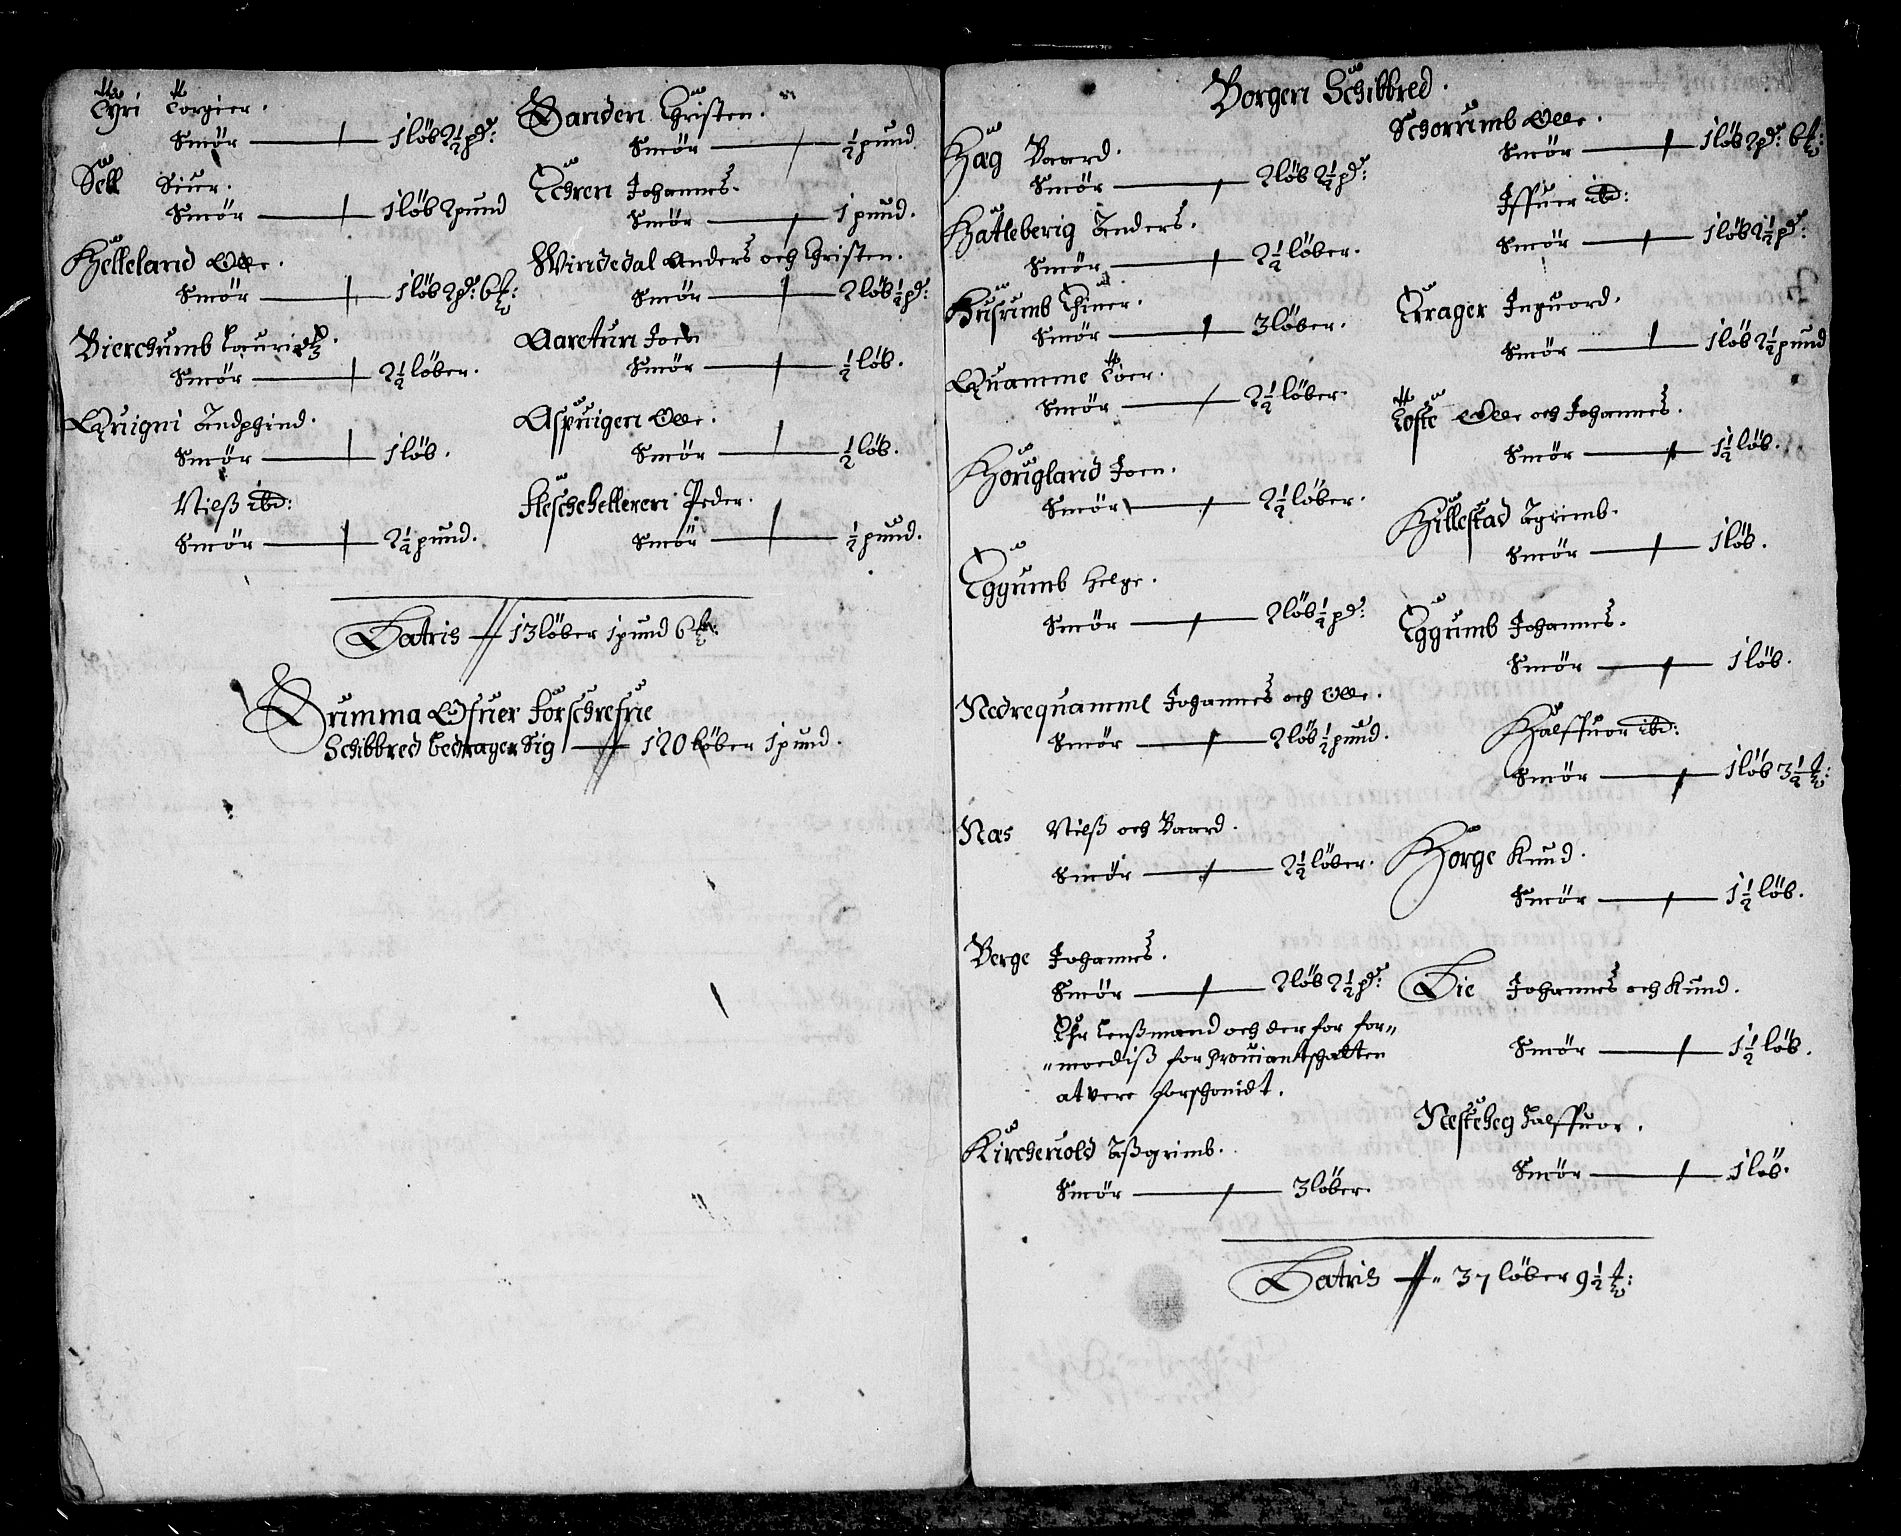 Tyri Torgier.
Smör — 1 löb 2½ pd:
Sell Siur.
Smör — 1 löb 2 pund
Helleland Olle.
Smör — 1 löb 2 pd: 6 ℔:
Bierchumb Lauridß.
Smör — 2½ löber.
Quigni Andphind.
Smör — 1 löb.
Nilß ibd:
Smör — 2½ pund.
Sanden Christen.
Smör — ½ pund
Echren Johannes.
Smör — 1 pund.
Windedal Anders och Christen.
Smör — 2 löb ½ pd:
Aaretun Joen
Smör — ½ löb.
Aspuigen Olle.
Smör — ½ löb.
Fleschehelleren Peder.
Smör — ½ pund.
Latris — 13 löber 1 pund 6 ℔:
Summa Ofuer forschrefne
Schibbred bedrager Sig — 120 löber 1 pund.
Borgen Schibbred.
Hæg Baard.
Smör — 2 löb 2½ pd:
Hatleberig Anders.
Smör — 2½ löber.
Husumb Einer.
Smör — 3 löber.
Quamme Toer.
Smör — 2½ löber.
Hougland Joen.
Smör — 2½ löber.
Eggumb Helge.
Smör — 2 löb ½ pd:
Nedrequamme Johannes och Olle.
Smör — 2 löb ½ pund.
Næs Nilß och Baard.
Smör — 2½ löber.
Berge Johannes.
Smör — 2 löb 2½ pd:
Ehr Lenßmand och der for for„
„moediß for Prouiantschatten
at vere forschonidt.
Kircheuold Aßgrimb.
Smör — 3 löber.
Schorumb Olle.
Smör — 1 löb 2 pd: 6 ℔:
Iffuer ibd:
Smör — 1 löb 2½ pd:
Krager Inguord.
Smör — 1 löb 2½ pund
Tofte Olle och Johannes.
Smör — 1½ löb.
Hillestad Agrimb.
Smör — 1 löb.
Eggumb Johannes.
Smör — 1 löb.
Halffuor ibd:
Smör — 1 löb 3½ ℔:
Horge Knud.
Smör — 1½ löb.
Lie Johannes och Knud.
Smör — 1½ löb.
Nesteheg Halffuor.
Smör — 1 löb.
Latris — 37 löber 9½ ℔: